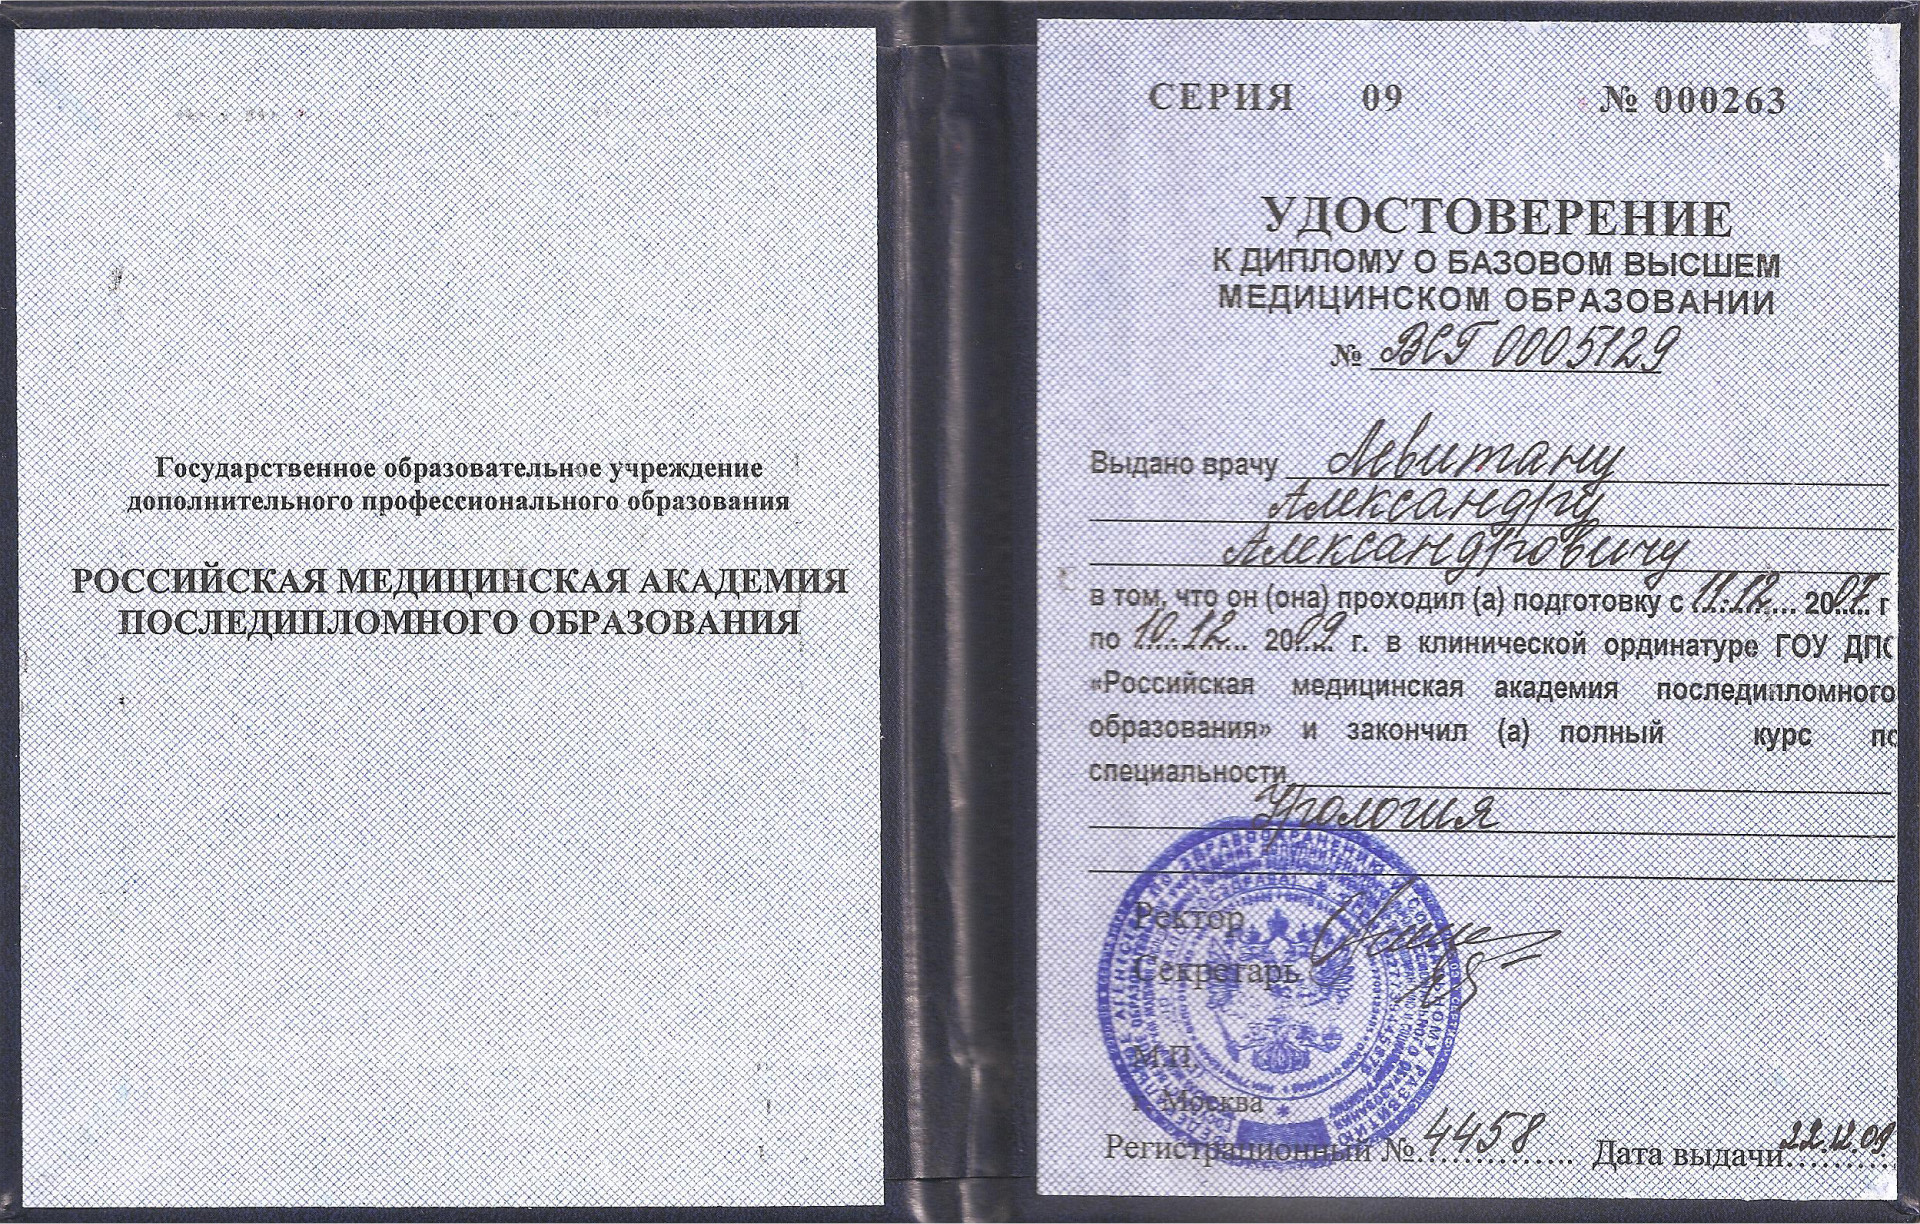 Государственное образовательное учреждение
дополнительного профессионального образования
РОССИЙСКАЯ МЕДИЦИНСКАЯ АКАДЕМИЯ
ПОСЛЕДИПЛОМНОГО ОБРАЗОВАНИЯ
СЕРИЯ 09 № 000263
УДОСТОВЕРЕНИЕ
К ДИПЛОМУ О БАЗОВОМ ВЫСШЕМ
МЕДИЦИНСКОМ ОБРАЗОВАНИИ
№ ВСГ 0005129
Выдано врачу Левитану
Александру
Александровичу
в том, что он (она) проходил (а) подготовку с 11.12. 2007 г
по 10.12. 2009 г. в клинической ординатуре ГОУ ДПО
«Российская медицинская академия последипломного
образования» и закончил (а) полный курс по
специальности
Урология
Ректор
Секретарь
М.П.
г. Москва
Регистрационный № 4458 Дата выдачи 22.12.09